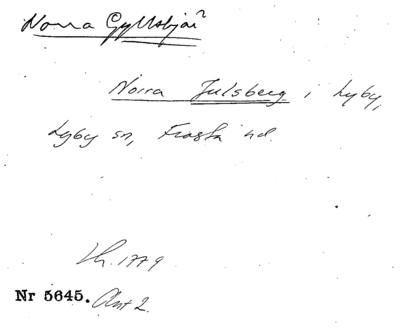 Norra Gyllsbjär
Norra Julsberg i Lyby,
Lyby sn, Frosta hd.
Lh. 1779
Nr 5645. Akt 2.